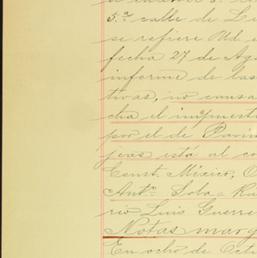 5.ª calle de Li
se refiere Ud e
fecha 27 de Ag
informe de las
tivas, no causa
cha el impuest
por el de Pavim
jeras está al co
Const. México, O
Ant.º Sola. Rú
rio, Luis Guerre
Notas marg
En ocho de Octu